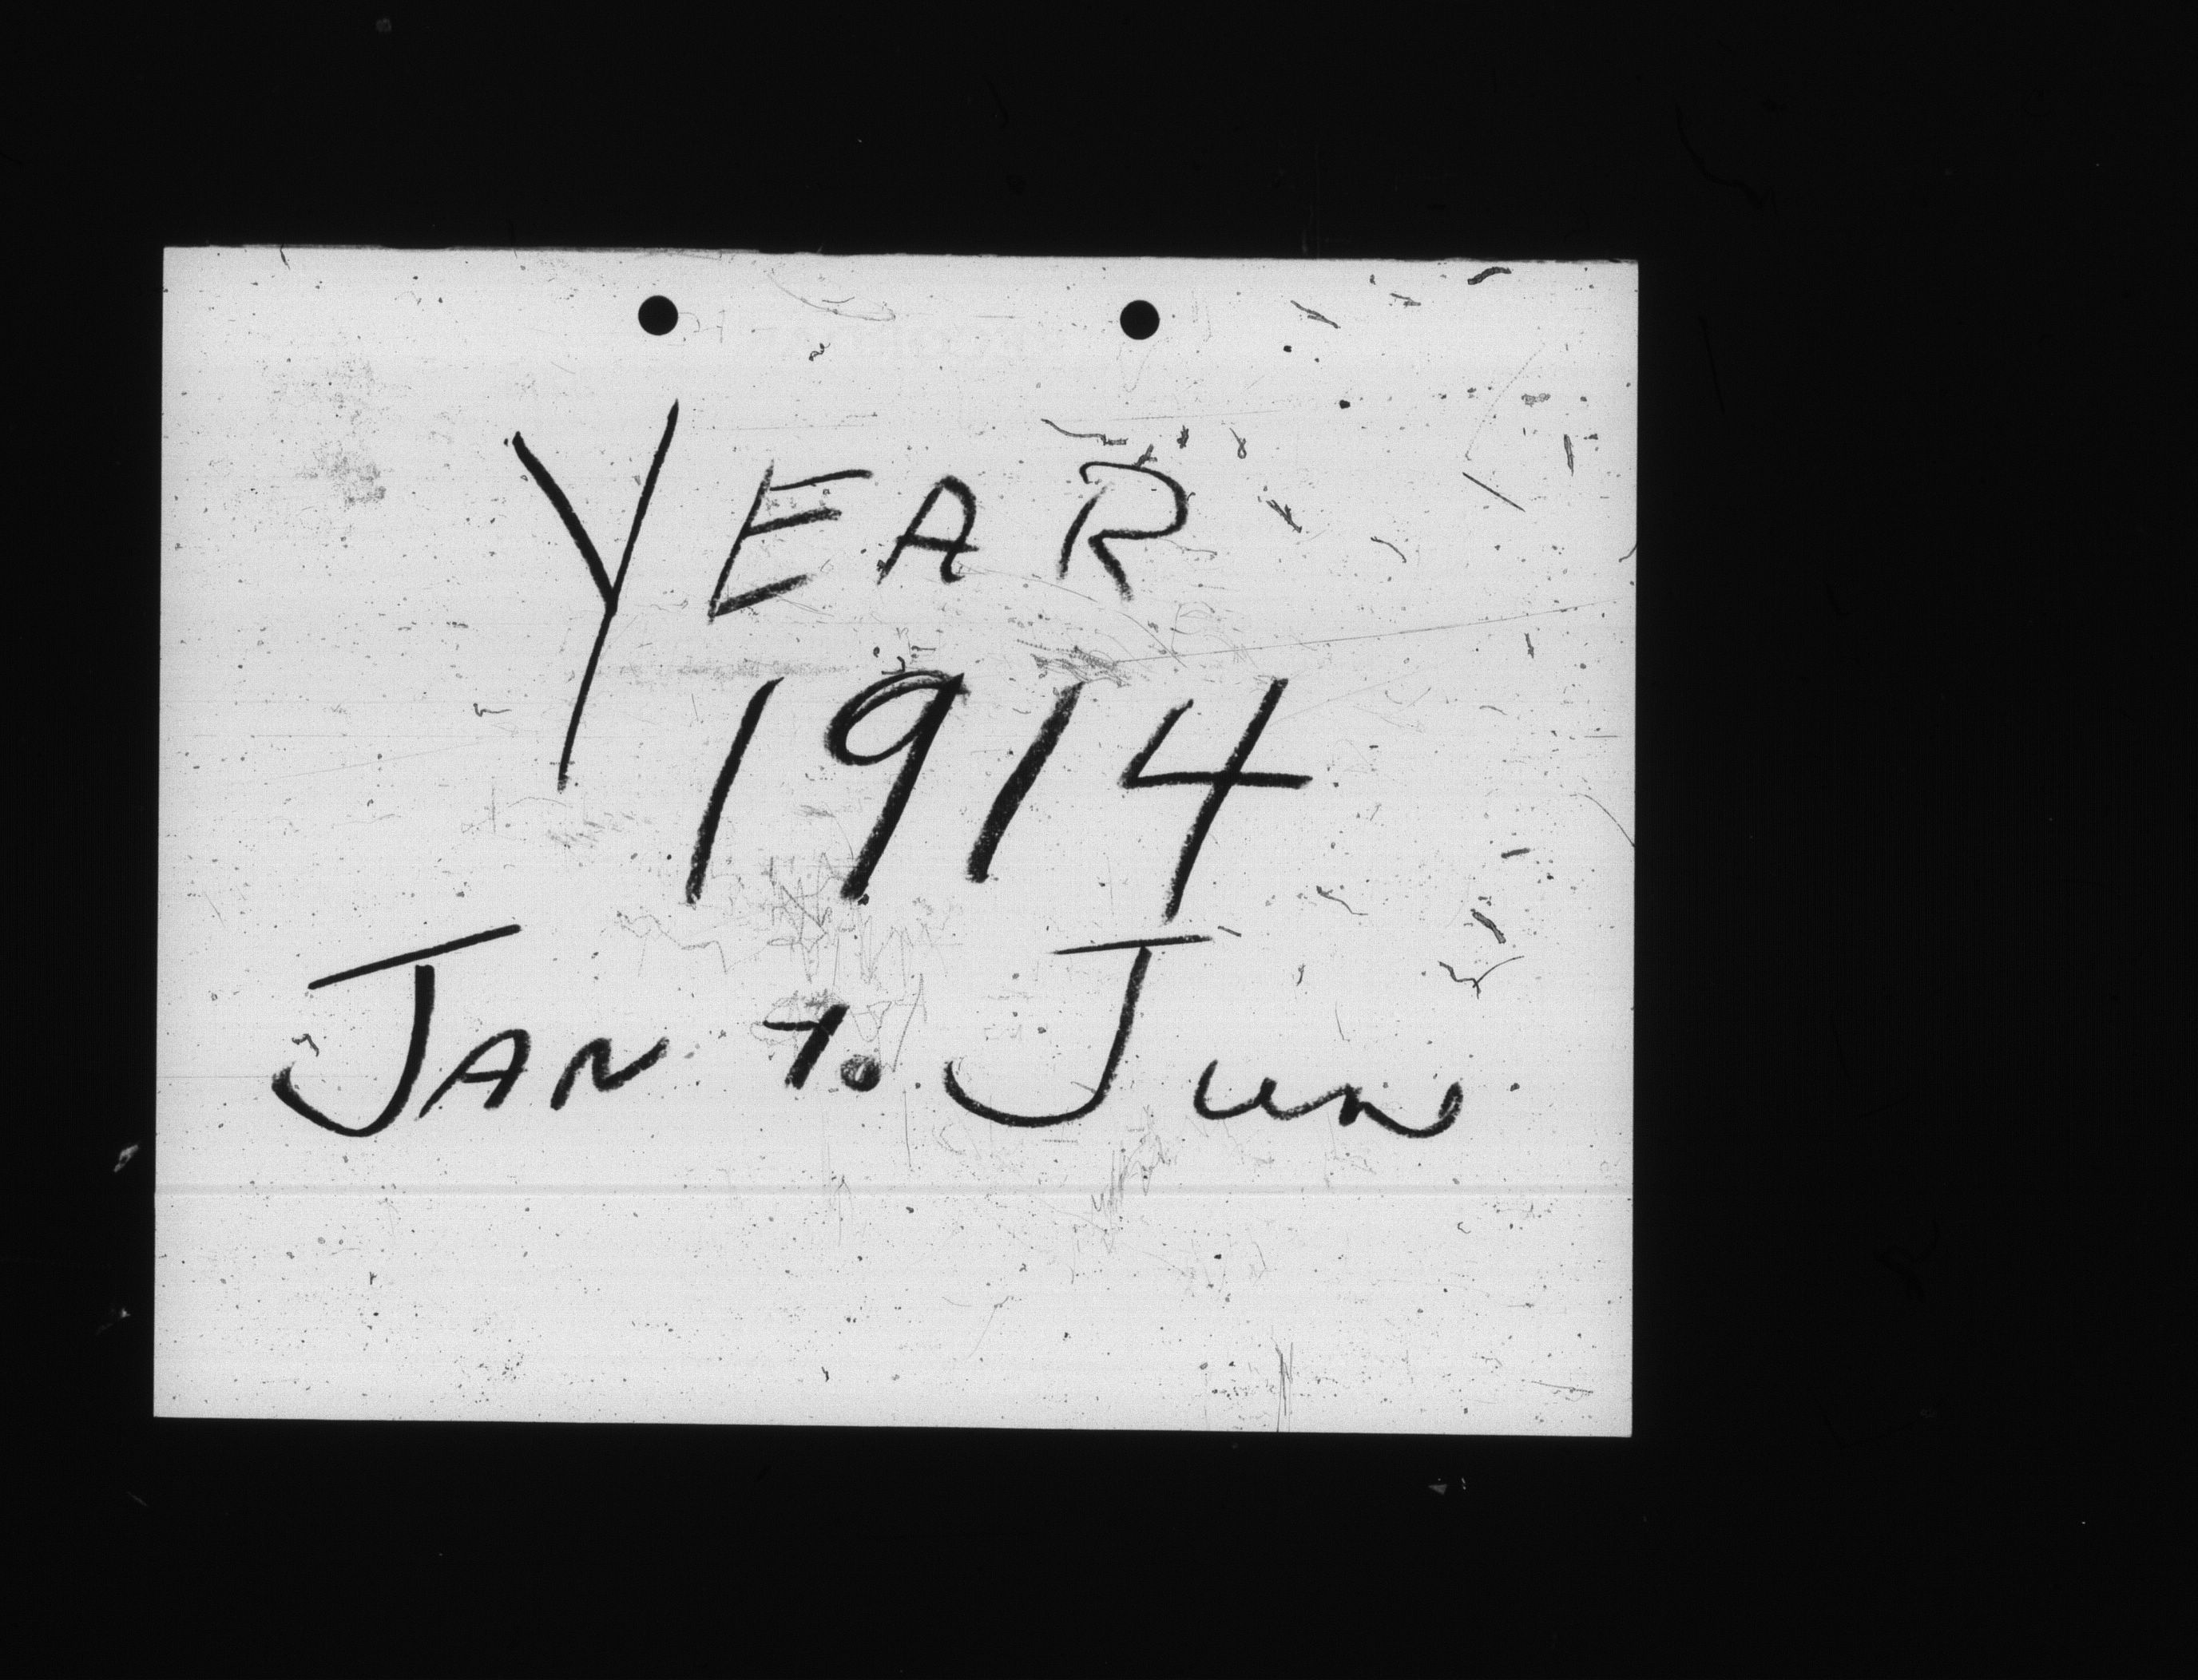 YEAR
1914
JAN To June